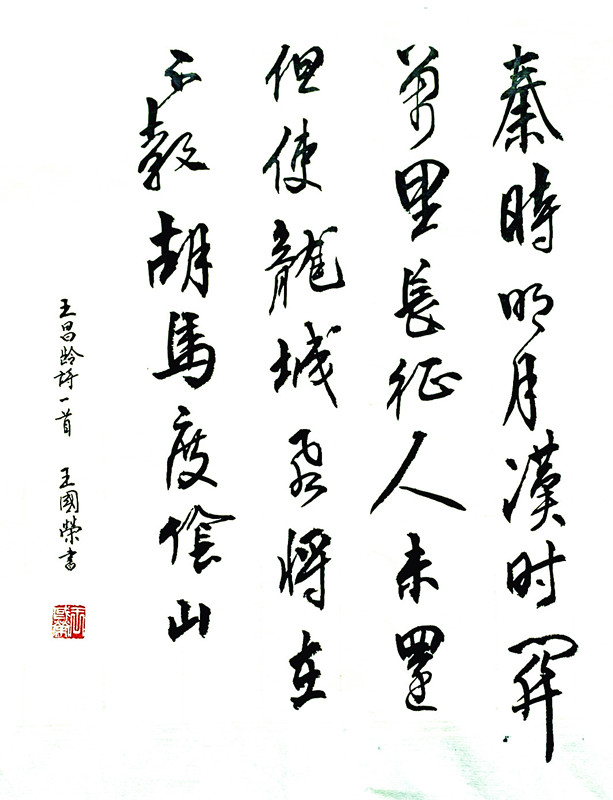 秦時明月漢时關
萬里長征人未還
但使龍城飛將在
不教胡馬度陰山
王昌齡詩一首 王國榮書